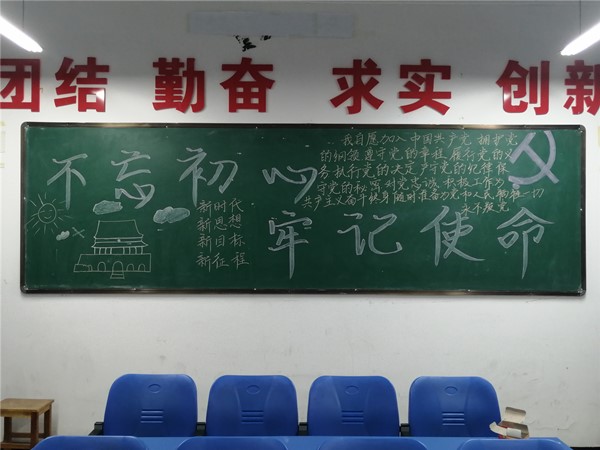 团结 勤奋 求实 创新
不忘初心
我自愿加入中国共产党,拥护党
的纲领遵守党的章程,履行党的义
务执行党的决定,严守党的纪律保
守党的秘密对党忠诚,积极工作为
共产主义奋斗终身随时准备为党和人民牺牲一切
永不叛党
新时代
新思想
新目标
新征程
牢记使命